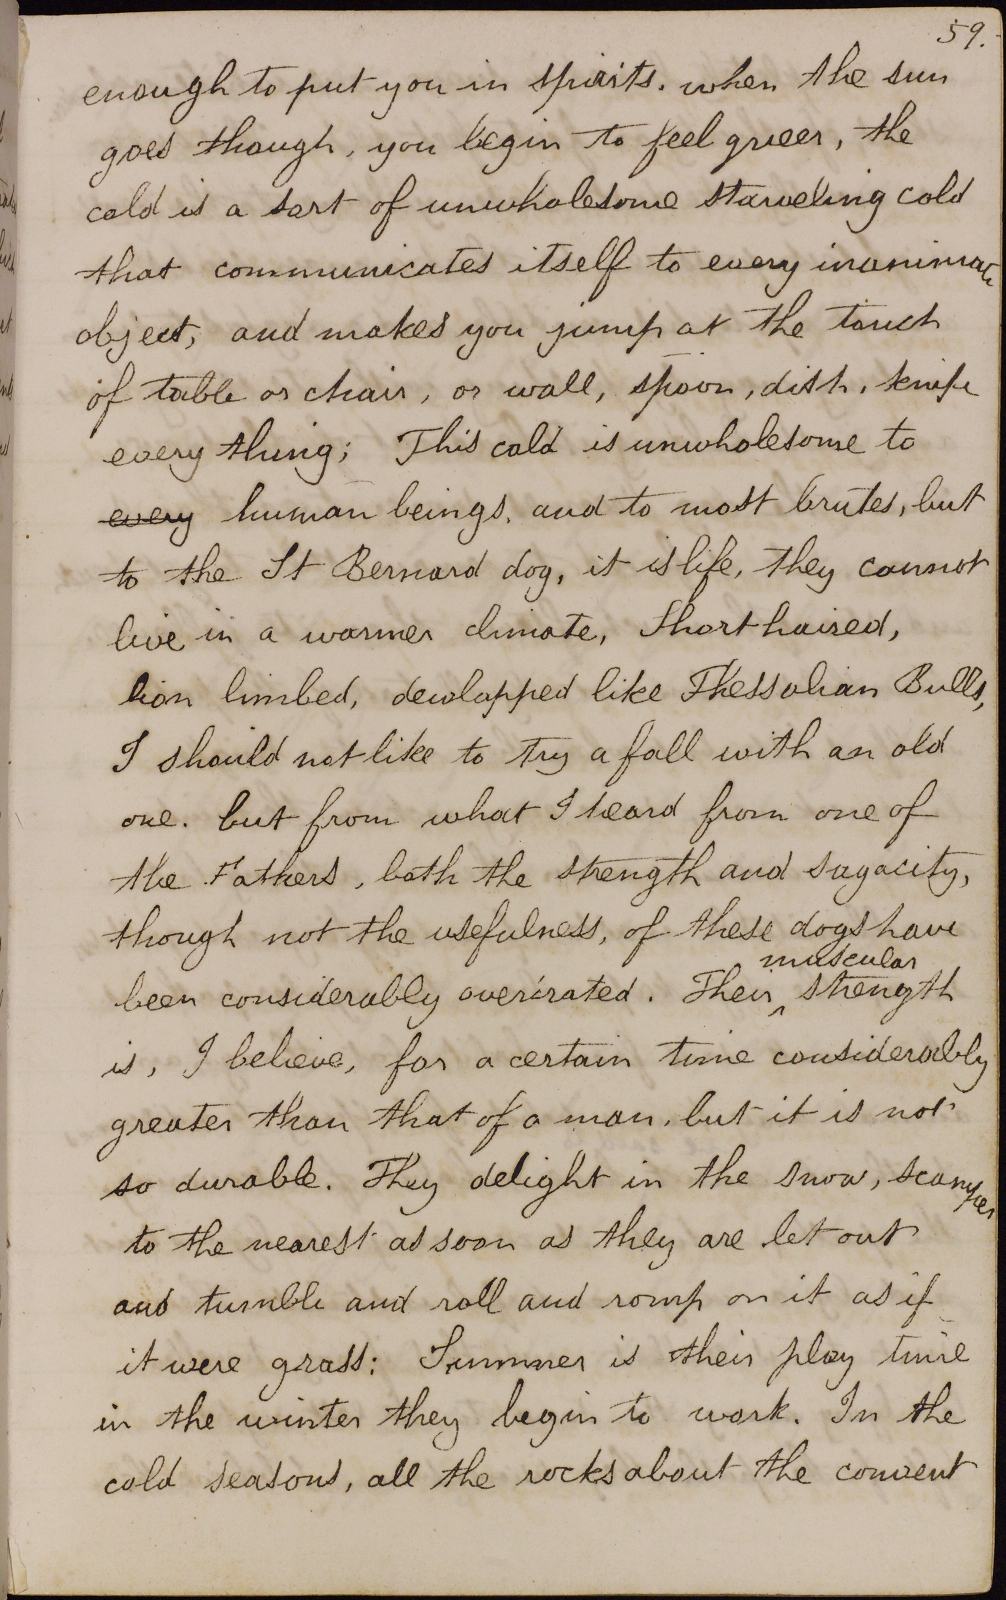 59.
enough to put you in spirits. when the sun
goes though, you begin to feel queer, the
cold is a sort of unwholesome starveling cold
that communicates itself to every inanimate
object, and makes you jump at the touch
of table or chair, or wall, spoon, dish, knife
every thing; This cold is unwholesome to
every human beings. and to most brutes, but
to the St Bernard dog, it is life, they cannot
live in a warmer climate, Short haired,
lion limbed, dewlapped like Thessalian Bulls,
I should not like to try a fall with an old
one. but from what I heard from one of
the Fathers, both the strength and sagacity,
though not the usefulness, of these dogs have
been considerably overrated. Their muscular strength
is, I believe, for a certain time considerably
greater than that of a man, but it is not
so durable. They delight in the snow, scamper
to the nearest as soon as they are let out
and tumble and roll and romp on it as if
it were grass: Summer is their play time
in the winter they begin to work. In the
cold seasons, all the rocks about the convent